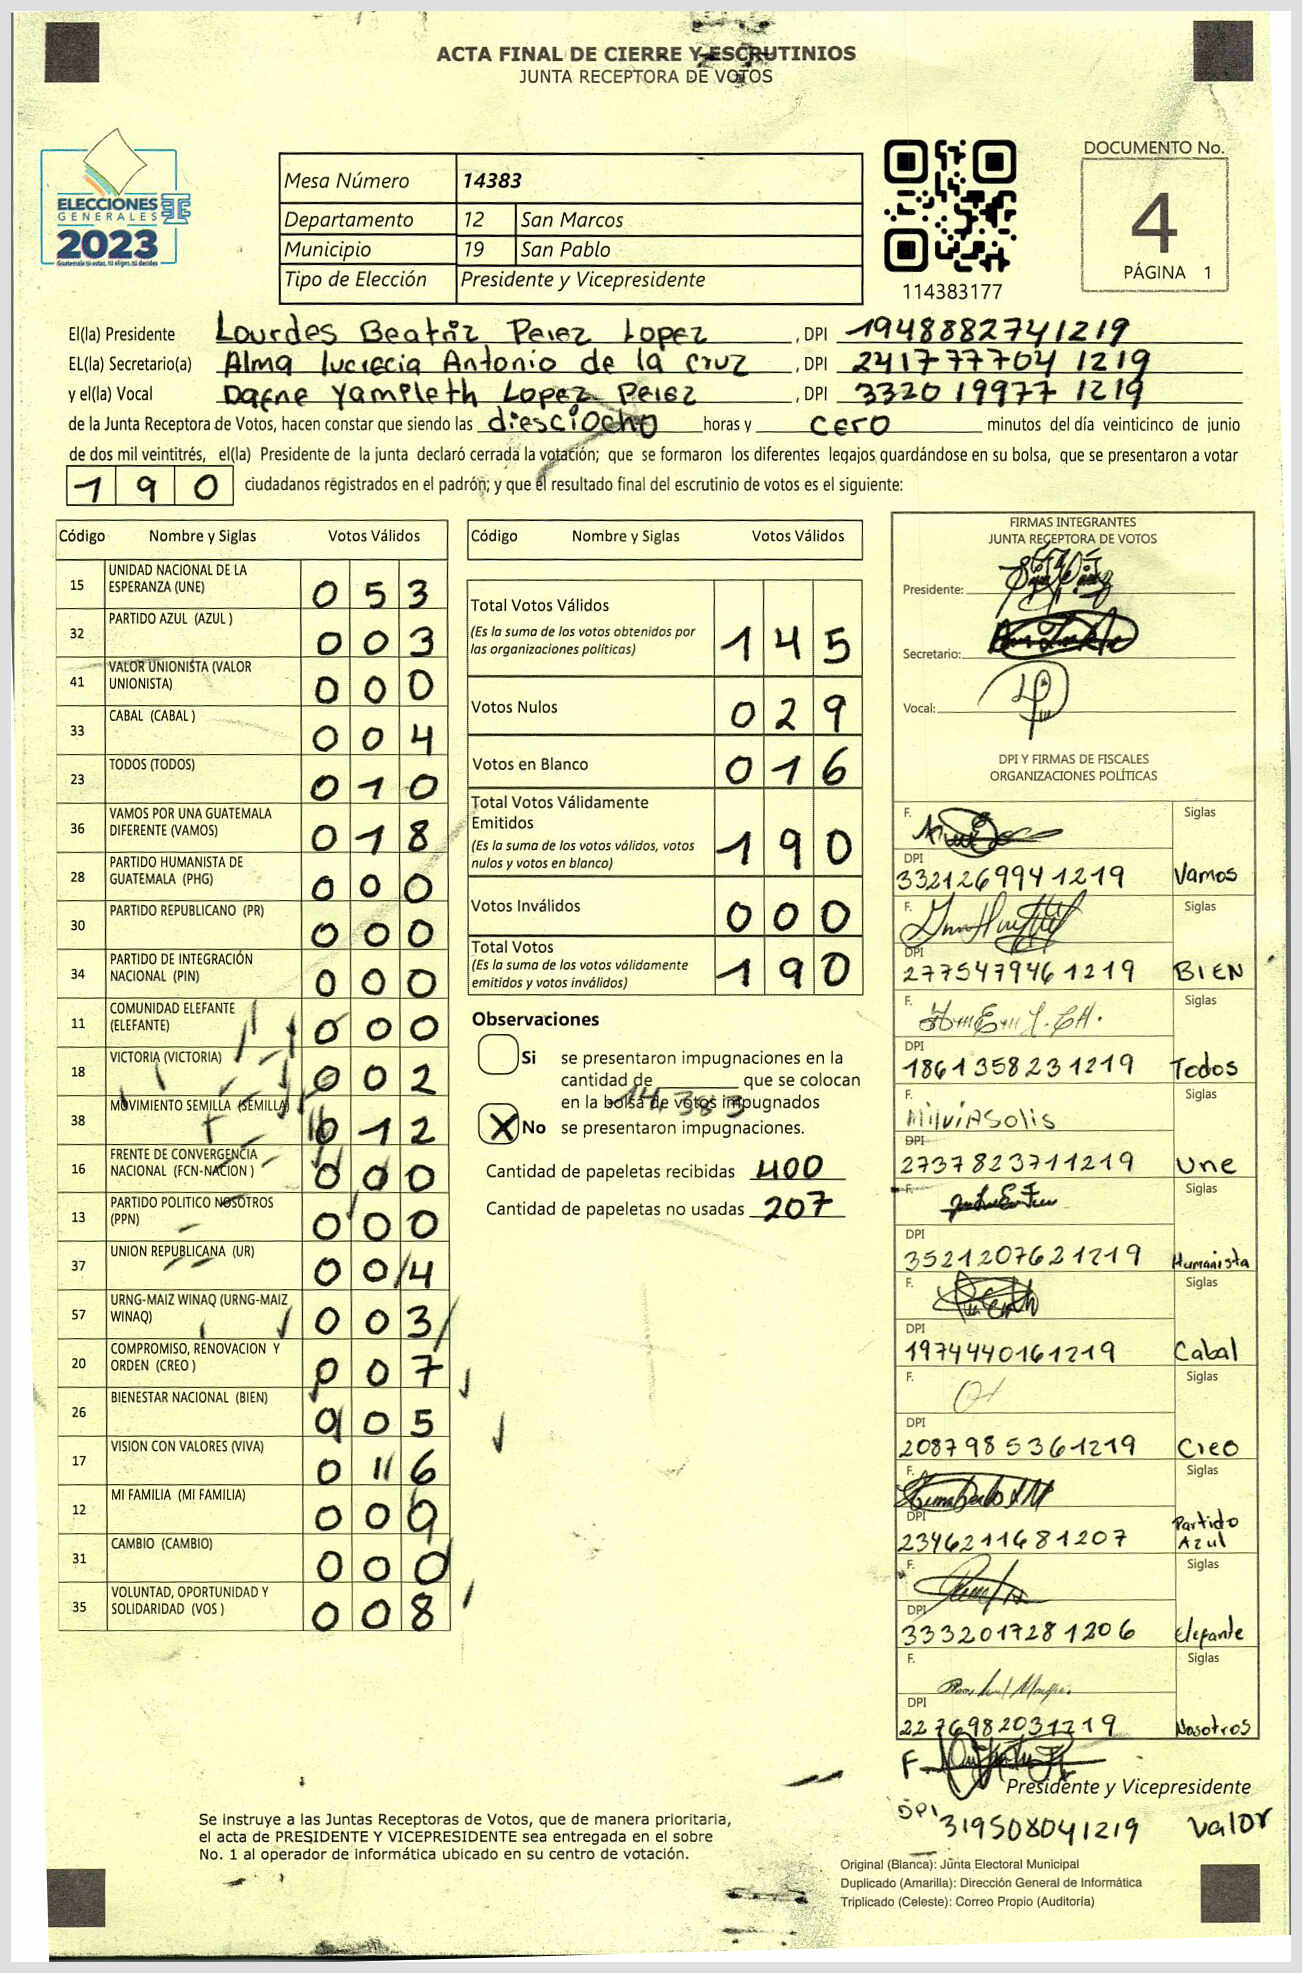 ACTA FINAL DE CIERRE Y ESCRUTINIOS
JUNTA RECEPTORA DE VOTOS
ELECCIONES
GENERALES
2023
Mesa Número 14383
Departamento 12 San Marcos
Municipio 19 San Pablo
Tipo de Elección Presidente y Vicepresidente
114383177
DOCUMENTO No.
4
PÁGINA 1
El(la) Presidente Lourdes Beatriz Perez Lopez, DPI 1948882741219
EL(la) Secretario(a) Alma lucrecia Antonio de la cruz, DPI 2417777041219
y el(la) Vocal Dafne Yamileth Lopez Perez, DPI 3320199771219
de la Junta Receptora de Votos, hacen constar que siendo las diesciocho horas y cero minutos del día veinticinco de junio
de dos mil veintitrés, el(la) Presidente de la junta declaró cerrada la votación; que se formaron los diferentes legajos guardándose en su bolsa, que se presentaron a votar
190 ciudadanos registrados en el padrón; y que el resultado final del escrutinio de votos es el siguiente:
Código Nombre y Siglas Votos Válidos
15 UNIDAD NACIONAL DE LA ESPERANZA (UNE) 053
32 PARTIDO AZUL (AZUL ) 003
41 VALOR UNIONISTA (VALOR UNIONISTA) 000
33 CABAL (CABAL ) 004
23 TODOS (TODOS) 010
36 VAMOS POR UNA GUATEMALA DIFERENTE (VAMOS) 018
28 PARTIDO HUMANISTA DE GUATEMALA (PHG) 000
30 PARTIDO REPUBLICANO (PR) 000
34 PARTIDO DE INTEGRACIÓN NACIONAL (PIN) 000
11 COMUNIDAD ELEFANTE (ELEFANTE) 000
18 VICTORIA (VICTORIA) 002
38 MOVIMIENTO SEMILLA (SEMILLA) 012
16 FRENTE DE CONVERGENCIA NACIONAL (FCN-NACION ) 000
13 PARTIDO POLITICO NOSOTROS (PPN) 000
37 UNION REPUBLICANA (UR) 004
57 URNG-MAIZ WINAQ (URNG-MAIZ WINAQ) 003
20 COMPROMISO, RENOVACION Y ORDEN (CREO ) 007
26 BIENESTAR NACIONAL (BIEN) 005
17 VISION CON VALORES (VIVA) 016
12 MI FAMILIA (MI FAMILIA) 00
31 CAMBIO (CAMBIO) 000
35 VOLUNTAD, OPORTUNIDAD Y SOLIDARIDAD (VOS ) 008
Código Nombre y Siglas Votos Válidos
Total Votos Válidos 145
(Es la suma de los votos obtenidos por
las organizaciones políticas)
Votos Nulos 029
Votos en Blanco 016
Total Votos Válidamente
Emitidos 190
(Es la suma de los votos válidos, votos
nulos y votos en blanco)
Votos Inválidos 000
Total Votos 190
(Es la suma de los votos válidamente
emitidos y votos inválidos)
Observaciones
Si se presentaron impugnaciones en la
cantidad de ______ que se colocan
14,383
en la bolsa de votos impugnados
X No se presentaron impugnaciones.
Cantidad de papeletas recibidas 400
Cantidad de papeletas no usadas 207
FIRMAS INTEGRANTES
JUNTA RECEPTORA DE VOTOS
Presidente:
Secretario:
Vocal:
DPI Y FIRMAS DE FISCALES
ORGANIZACIONES POLÍTICAS
F. Siglas
DPI
3321269941219 Vamos
F. Siglas
DPI
2775479461219 BIEN
F. Siglas
DPI
1861358231219 Todos
F. Siglas
MilviASolis
DPI
2737823711219 Une
F. Siglas
DPI
3521207621219 Humanista
F. Siglas
DPI
1974440161219 Cabal
F. Siglas
DPI
2087985361219 Creo
F. Siglas
DPI
2346211681207 Partido Azul
F. Siglas
DPI
3332017281206 Elefante
F. Siglas
DPI
2276982031219 Nosotros
F.
Presidente y Vicepresidente
DPI 319508041219 Valor
Se instruye a las Juntas Receptoras de Votos, que de manera prioritaria,
el acta de PRESIDENTE Y VICEPRESIDENTE sea entregada en el sobre
No. 1 al operador de informática ubicado en su centro de votación.
Original (Blanca): Junta Electoral Municipal
Duplicado (Amarilla): Dirección General de Informática
Triplicado (Celeste): Correo Propio (Auditoría)